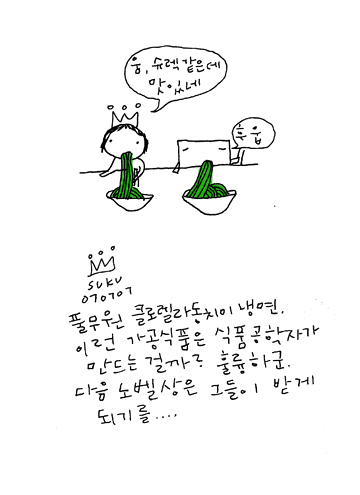 움, 슈렉같은데
맛있네
후웁
SUKU
070707
풀무원 클로렐라동치미냉면.
이런 가공식품은 식품공학자가
만드는 걸까? 훌륭하군.
다음 노벨상은 그들이 받게
되기를....